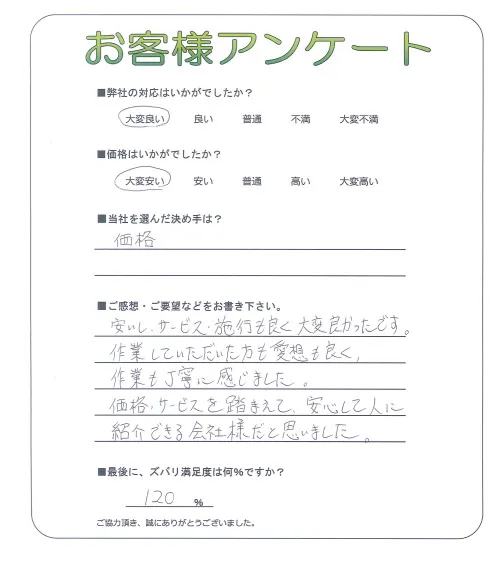 お客様アンケート
■弊社の対応はいかがでしたか？
大変良い 良い 普通 不満 大変不満
■価格はいかがでしたか？
大変安い 安い 普通 高い 大変高い
■当社を選んだ決め手は？
価格
■ご感想・ご要望などをお書き下さい。
安いし、サービス・施行も良く大変良かったです。
作業していただいた方も愛想も良く、
作業も丁寧に感じました。
価格、サービスを踏まえて、安心して人に
紹介できる会社様だと思いました。
■最後に、ズバリ満足度は何％ですか？
120 %
ご協力頂き、誠にありがとうございました。